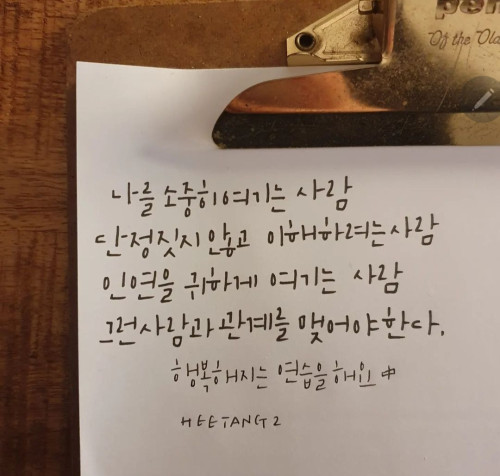 pen
Of the Old
나를 소중히 여기는 사람
단정짓지 않고 이해하려는 사람
인연을 귀하게 여기는 사람
그런 사람과 관계를 맺어야 한다.
행복해지는 연습을 해요 中
HEETANG2